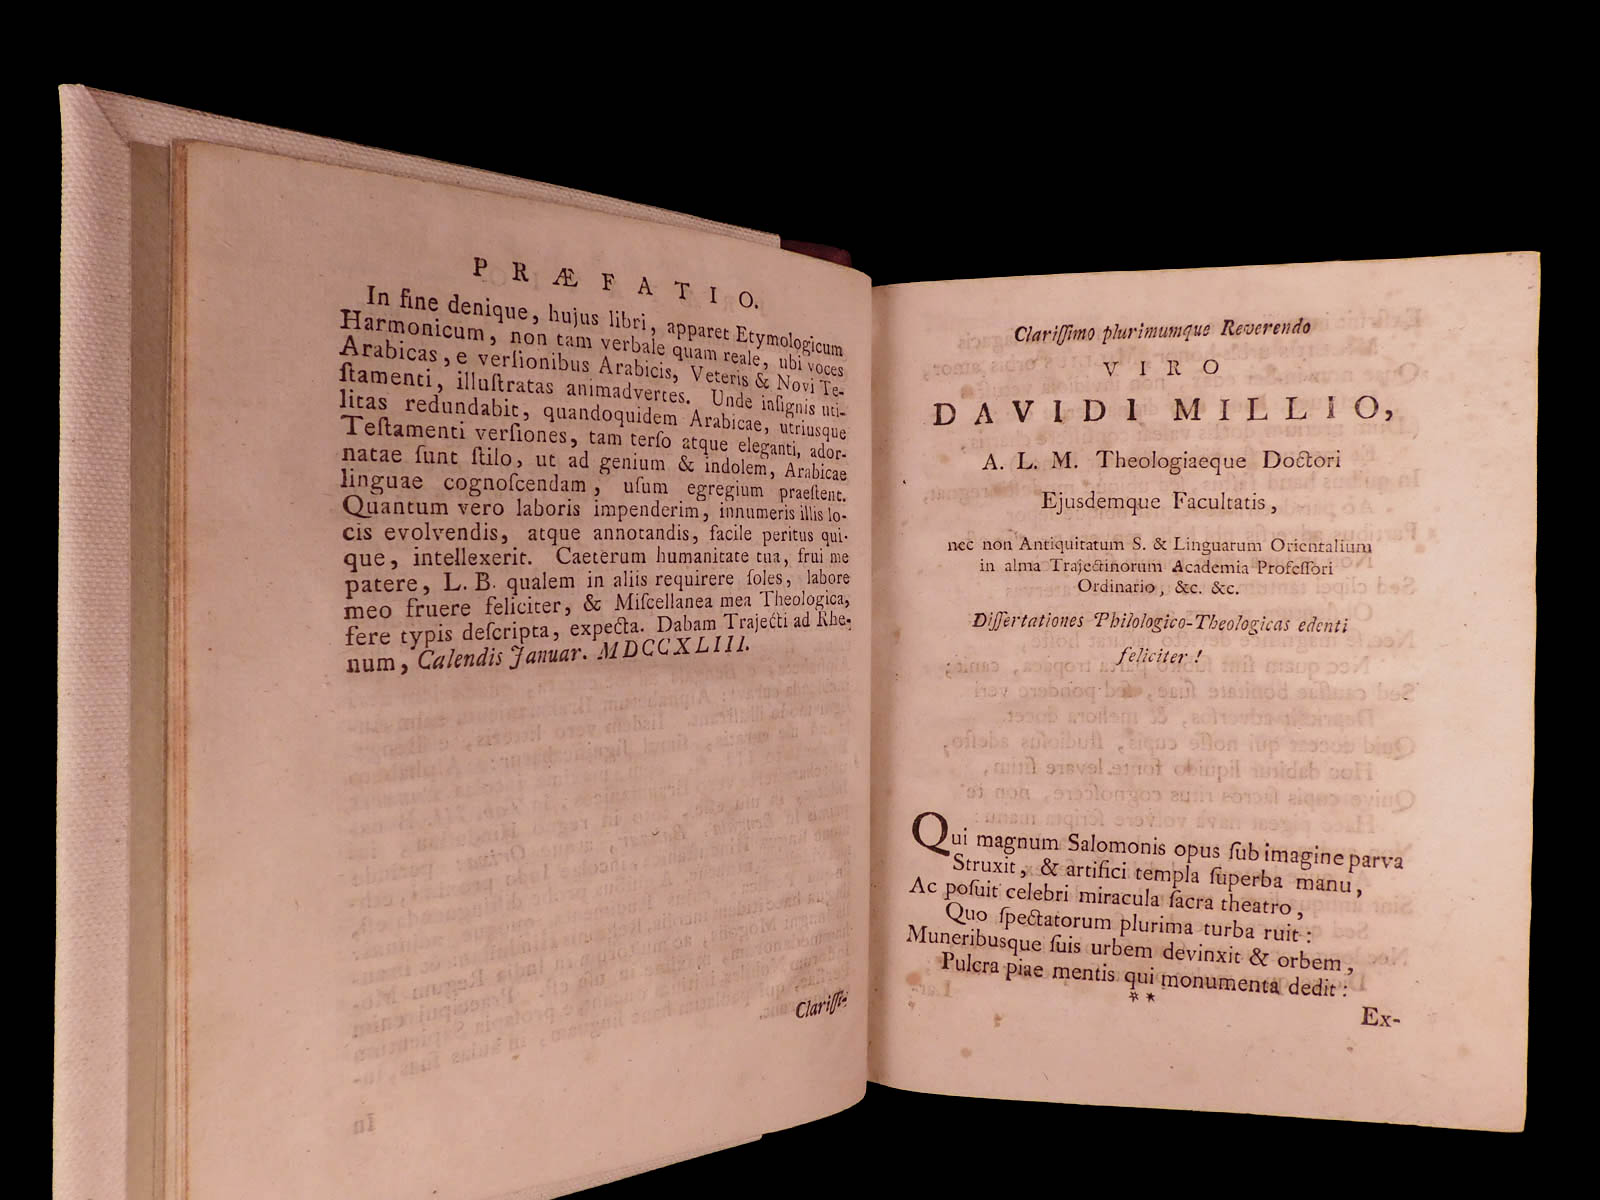 PRÆFATIO.
In fine denique, hujus libri, apparet Etymologicum
Harmonicum, non tam verbale quam reale, ubi voces
Arabicas, e verſionibus Arabicis, Veteris & Novi Te-
ſtamenti, illuſtratas animadvertes. Unde inſignis uti-
litas redundabit, quandoquidem Arabicae, utriusque
Teſtamenti verſiones, tam terſo atque eleganti, ador-
natae ſunt ſtilo, ut ad genium & indolem, Arabicae
linguae cognoſcendam, uſum egregium praeſtent.
Quantum vero laboris impenderim, innumeris illis lo-
cis evolvendis, atque annotandis, facile peritus qui-
que, intellexerit. Caeterum humanitate tua, frui me
patere, L. B. qualem in aliis requirere ſoles, labore
meo fruere feliciter, & Miſcellanea mea Theologica,
fere typis deſcripta, expecta. Dabam Trajecti ad Rhe-
num, Calendis Januar. MDCCXLIII.
Clariſſi-
Clariſſimo plurimumque Reverendo
VIRO
DAVIDI MILLIO,
A. L. M. Theologiaeque Doctori
Ejusdemque Facultatis,
nec non Antiquitatum S. & Linguarum Orientalium
in alma Trajectinorum Academia Profeſſori
Ordinario, &c. &c.
Diſſertationes Philologico-Theologicas edenti
feliciter!
Qui magnum Salomonis opus ſub imagine parva
Struxit, & artifici templa ſuperba manu,
Ac poſuit celebri miracula ſacra theatro,
Quo ſpectatorum plurima turba ruit:
Muneribusque ſuis urbem devinxit & orbem,
Pulcra piae mentis qui monumenta dedit:
**
Ex-